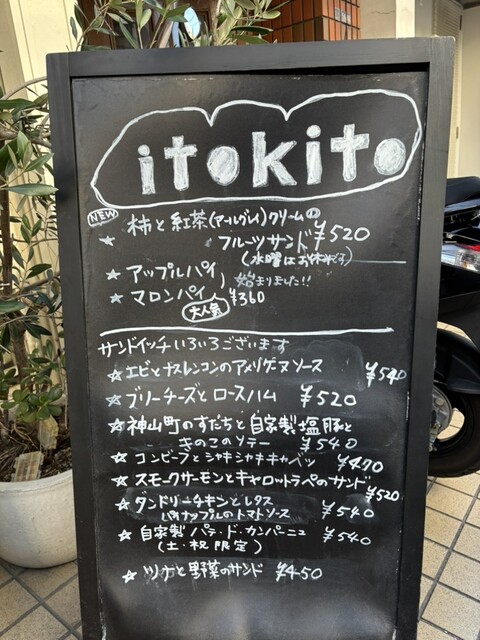 itokito
NEW
★ 柿と紅茶(アールグレイ)クリームの
フルーツサンド ¥520
(水曜はお休みです)
★ アップルパイ
★ マロンパイ 始まりました!!
大人気 ¥360
サンドイッチいろいろございます
☆ エビとナスレンコンのアメリケーヌソース ¥540
☆ ブリーチーズとロースハム ¥520
☆ 神山町のすだちと自家製塩豚と
きのこのソテー ¥540
☆ コンビーフとシャキシャキキャベツ ¥470
☆ スモークサーモンとキャロットラペのサンド ¥520
☆ タンドリーチキンとレタス
パイナップルのトマトソース ¥540
☆ 自家製パテ・ド・カンパーニュ ¥540
(土・祝限定)
☆ ツナと野菜のサンド ¥450